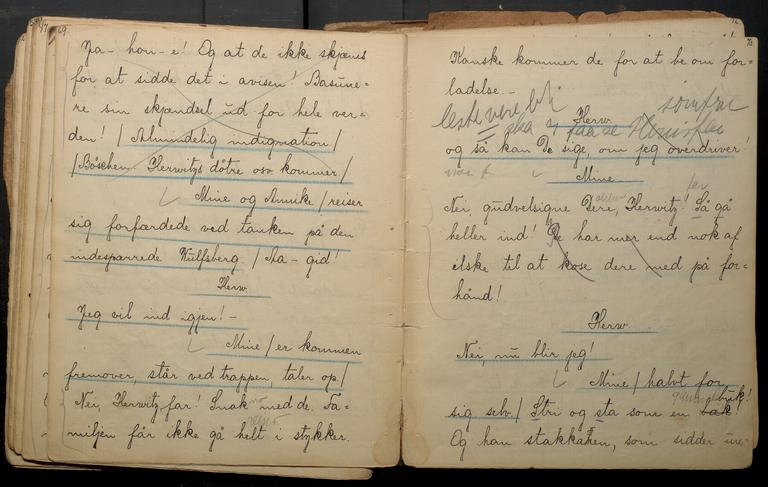 69.
Ja-hon-e! Og at de ikke skjæms
for at sidde det i avisen! Basune=
re sin skjændsel ud for hele ver=
den! / Almindelig indignation /
/ Böschen. Herwitz's døtre osv. kommer /
Mine og Annike / reiser
sig forfærdede ved tanken på den
indesparrede Wulfsberg. / Aa-gid!
Herw.
Jeg vil ind igjen! -
Mine / er kommen
fremover, står ved trappen, taler op. /
Nei, Herwitz far! Snak med de. Fa=
miljen får ikke gå helt i stykker.
70
Kanske kommer de for at be om for=
ladelse. -
Herw.
og så kan De sige, om jeg overdriver!
Mine.
Nei, gudvelsigne Dere, Herwitz! Så gå
heller ind! De har mer end nok af
ilske til at kose dere med på for=
hånd!
Herw.
Nei, nu blir jeg!
Mine / halvt for
sig selv / Stri og sta som en buk!
Og han stakkaren, som sidder in=